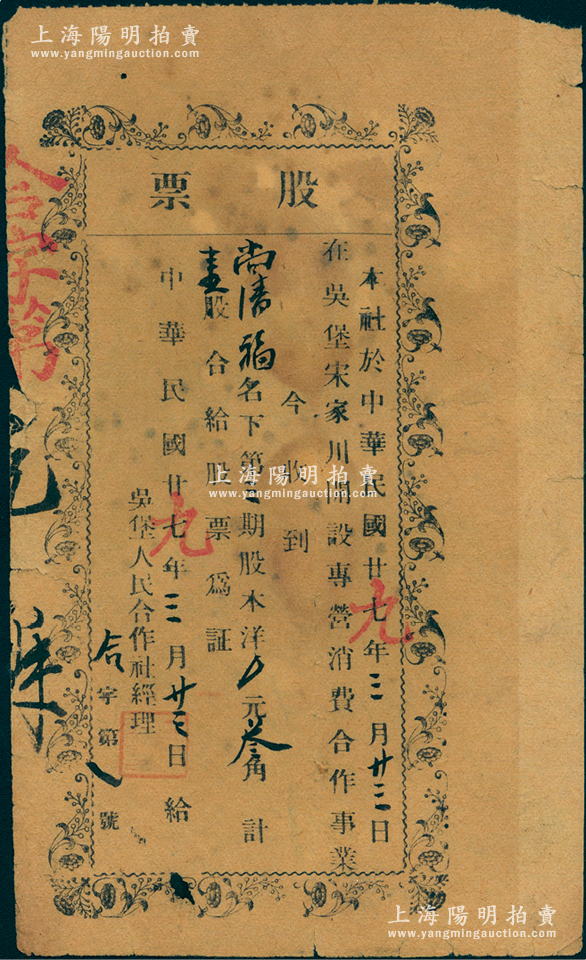 上海陽明拍賣
www.yangmingauction.com
股票
本社於中華民國廿七年三月廿三日
九
在吳堡宋家川開設專營消費合作事業
今收到
名下第期股本洋元叁角計
壹股合給股票為証
中華民國廿七年三月廿三日給
九
吳堡人民合作社經理
合字第號
合字第
上海陽明拍賣
www.yangmingauction.com
上海陽明拍賣
www.yangmingauction.com